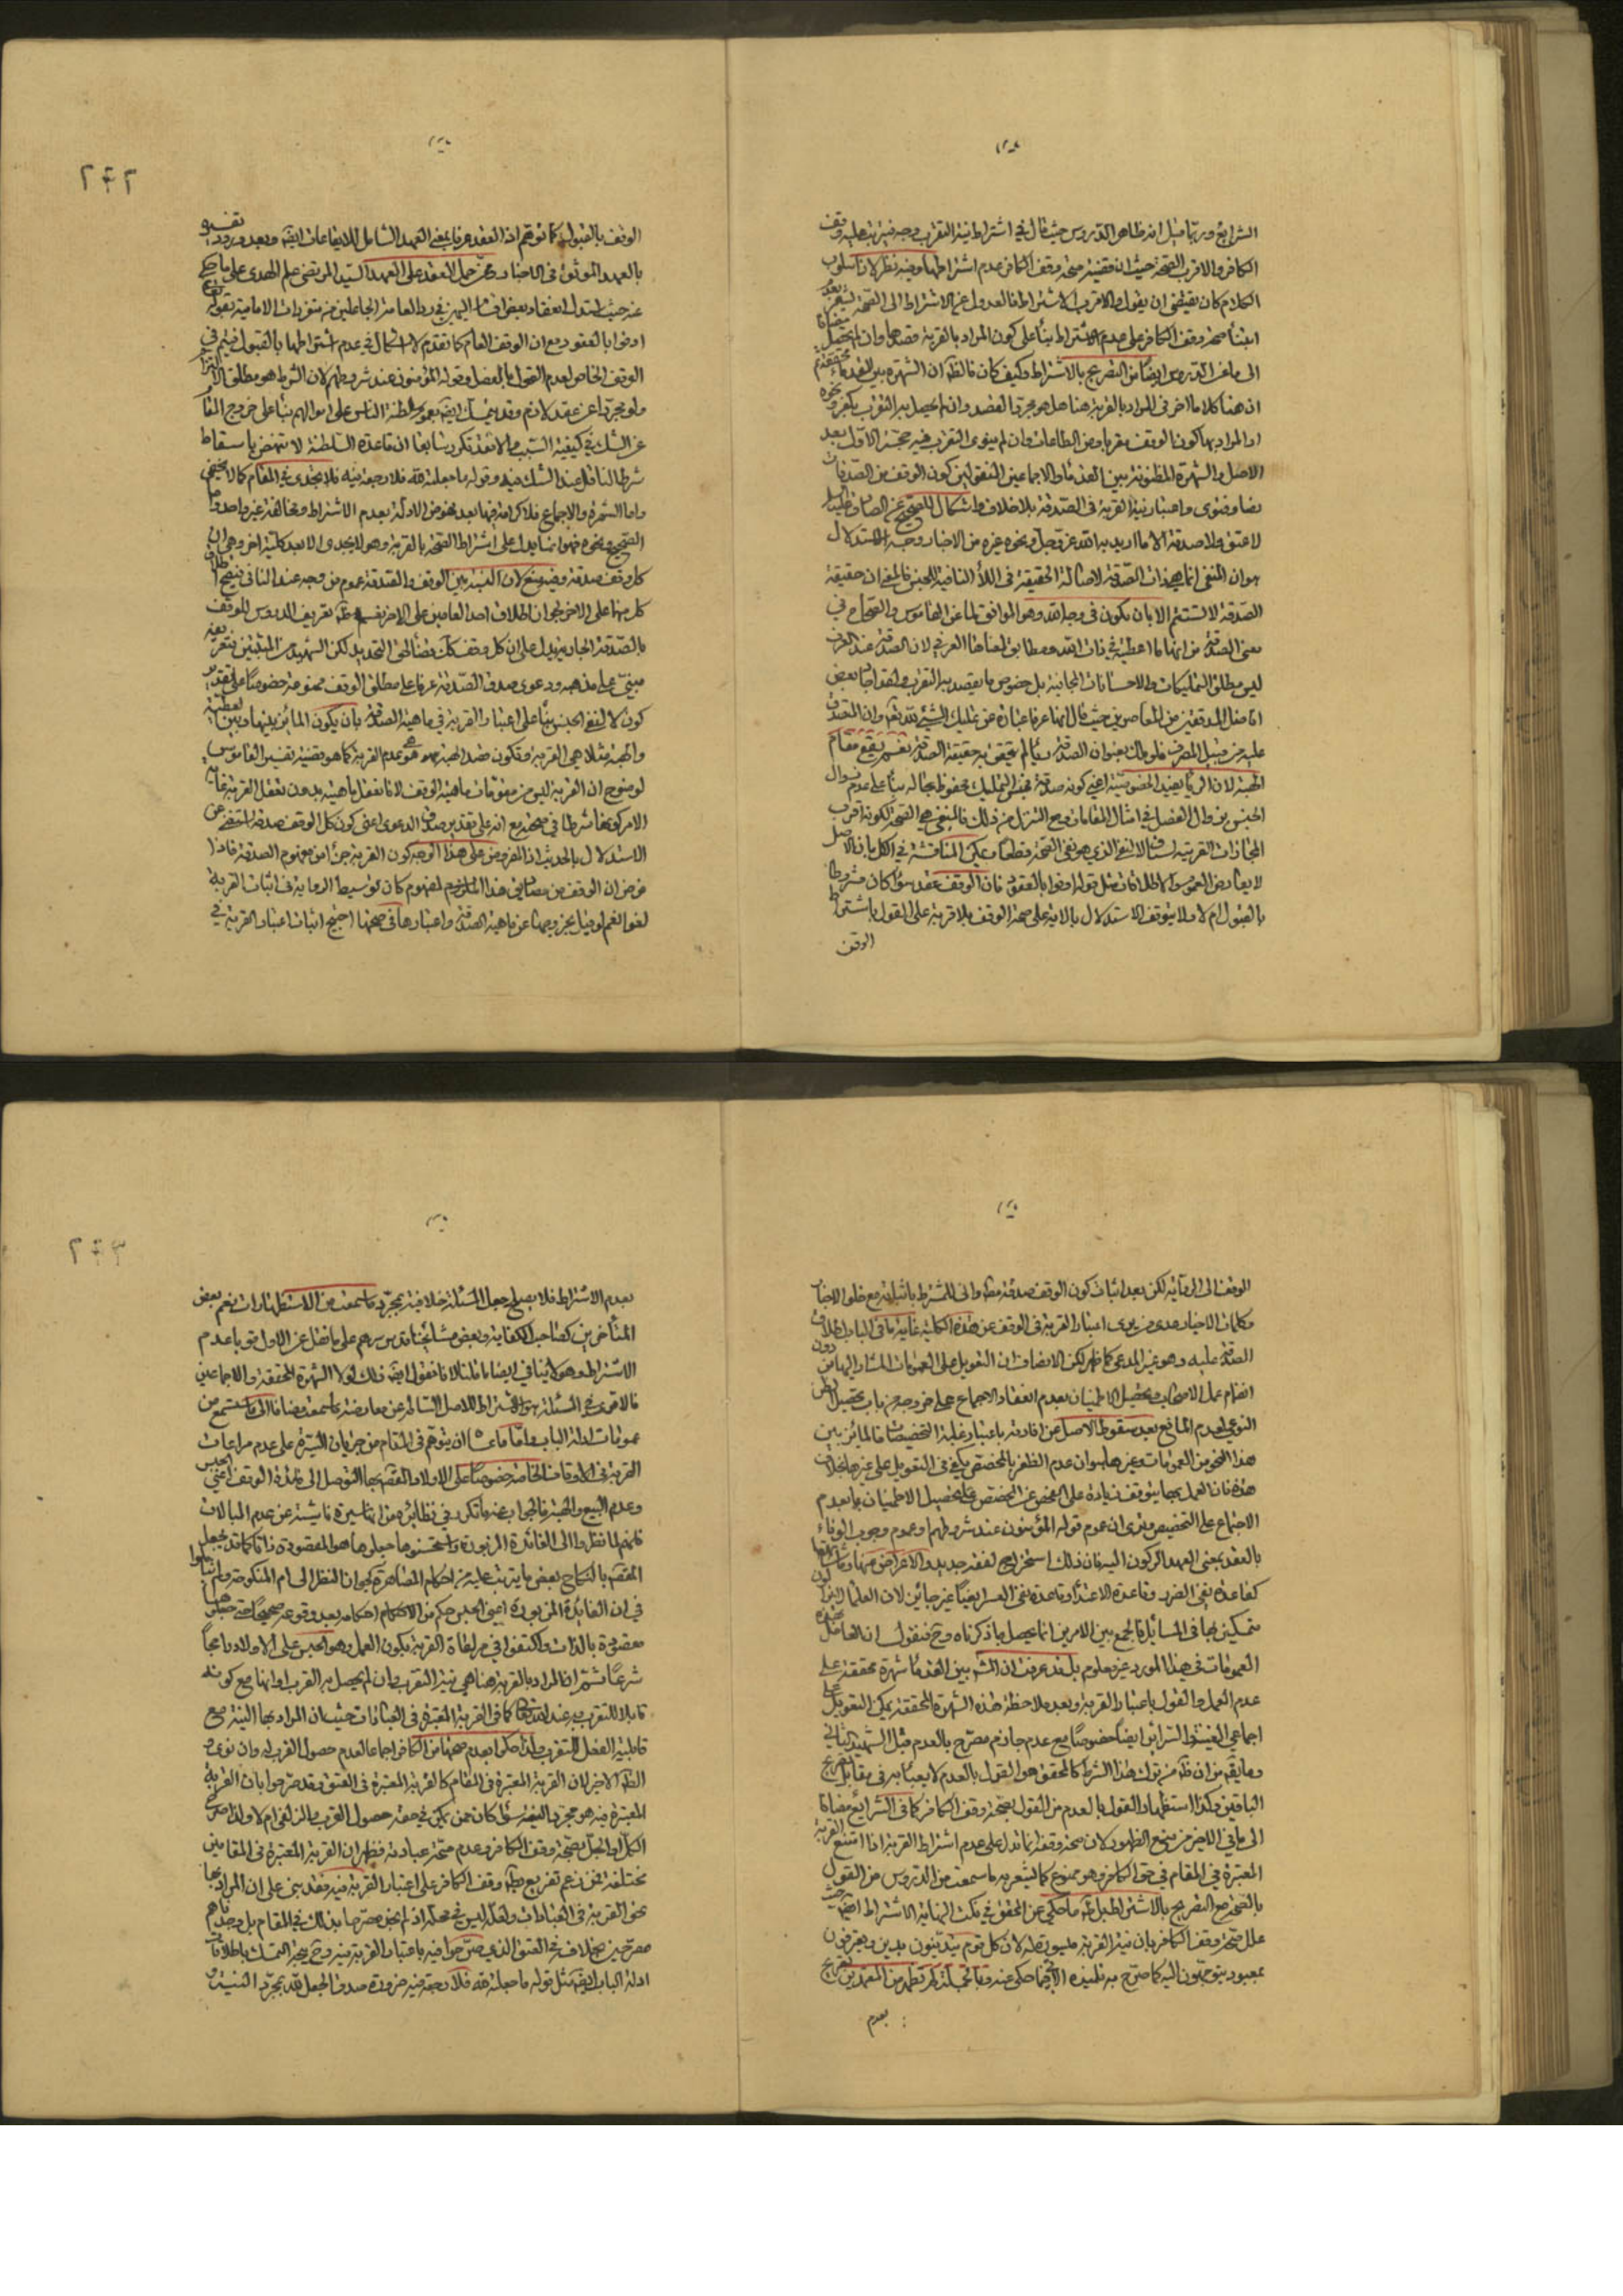 الشرايع وربما قيل انه ظاهر الدروس حيث قال في اشتراط نية التقرب وجه فيترتب عليه وقف
الكافر والاقرب الصحة حيث ان قضية صحة وقف الكافر عدم اشتراطها وفيه نظر لان اسلوب
الكلام كان يقتضي ان يقول والاقرب الاشتراط فالعدول عن الاشتراط الى الصحة
ابتناء صحة وقف الكافر على عدم الاشتراط بناء على كون المراد بالقربة قصدها وان لم يحصل
الى ما في الدروس ايضا من التصريح بالاشتراط وكيف كان فالظ ان الشهرة بين القدماء محققة ثم
ان هنا كلاما اخر في المراد بالقربة هنا هل هو مجرد القصد وان لم يحصل به التقرب لكفر ونحوه
او المراد بها كون الوقف مقربا ومن الطاعات وان لم ينوى التقرب فيه حجة الاول بعد
الاصل والشهرة المظنونة بين القدماء والاجماعين المنقولين كون الوقف من الصدقات
نصا وفتوى واعتبار نية القربة في الصدقة بلا خلاف ولا اشكال للصحيح عن الصادق
لا عتق ولا صدقة الا ما اريد به الله عز وجل ونحوه غيره من الاخبار وجه الاستدلال
هو ان المنفي انما هي ذات الصدقة لاصالة الحقيقة في اللاء النافية للجنس فالمعنى ان حقيقة
الصدقة لا تستتم الا بان يكون في وجه الله وهو الموافق لما عن القاموس والصحاح في
معنى الصدقة من انها ما اعطيته في ذات الله ومطابق لمعناها العرفي لان الصدقة عند العرف
ليس مطلق التمليكات والاحسانات المجانية بل خصوص ما يقصد به التقرب ولقد اجاد بعض
افاضل المدققين من المعاصرين حيث قال انها عرفا عبارة عن تمليك الشيء لله تعالى وان المتصدق
عليه من قبيل المصرف فلو ملك بعنوان الصدقة رياء لم يتحقق به حقيقة الصدقة نعم يقع مقام
الهبة لان الرياء يفيد الخصوصية اعني كونه صدقة فجنس التمليك محفوظ بحاله بناء على عدم زوال
الجنس بزوال الفصل في امثال المقامات ومع التنزل من ذلك فالمنفي هي الصحة لكونه اقرب
المجازات العرفية لسياق النفي الذي هو نفي الصحة قطعا ويمكن المناقشة في الكل بان الاصل
لا يعارض العموم والاطلاقات مثل قوله اوفوا بالعقود فان الوقف عقد سواء كان مشروطا
بالقبول ام لا ولا يتوقف الاستدلال بالاية على صحة الوقف بلا قربة على القول باشتراط
الوقف
٢٤٢
الوقف بالقبول كما توهم اذ العقد عرفا بمعنى العهد الشامل للايقاعات ايضا وبعد ورود تفسيره
بالعهد الموثق في الاخبار وممن حمل العقد على العهد السيد المرتضى علم الهدى على ما حكي
عنه حيث استدل
اوفوا بالعقود مع ان الوقف العام كما تقدم لا اشكال في عدم اشتراطها بالقبول فيتم في
الوقف الخاص لعدم القول بالفصل وقوله المؤمنون عند شروطهم لان الشرط هو مطلق الالتزام
ولو مجردا عن عقد لازم وقد يتمسك ايضا بعموم سلطنة الناس على اموالهم بناء على خروج المقام
عن الشك في كيفية السبب والا فقد تكرر سابقا ان قاعدة السلطنة لا تنهض باسقاط
شرط الناقل عند الشك فيه وقوله ما جعلته لله فلا رجعة فيه فلا يجدى في المقام كما لا يخفى
واما الشهرة والاجماع فلا كرامة فيها بعد خلو من الادلة بعدم الاشتراط ومخالفة غير واحد واما
الصحيح ونحوه فهو انما يدل على اشتراط الصحة بالقربة وهو لا يجدى الا بعد كلية اخرى وهي ان
كل وقف صدقة وفيه منع لان النسبة بين الوقف والصدقة عموم من وجه عند النافي فيصح اطلاق
كل منهما على الاخر كما ان اطلاق احد العامين على الاخر نعم ظ تعريف الدروس للوقف
بالصدقة الجارية يدل على ان كل وقف كك قضاء لحق التحديد لكن الشهيد من المثبتين فتعريفه
مبني على مذهبه ودعوى صدق الصدقة عرفا على مطلق الوقف ممنوعة خصوصا على تقدير
كون لا لنفي الجنس بناء على اعتبار القربة في ماهية الصدقة بان يكون المائز بينها وبين العطية
والهبة مثلا هي القربة وتكون ضد الهبة هو عدم القربة كما هو قضية تفسير القاموس
لوضوح ان القربة ليس من مقومات ماهية الوقف لانا نعقل ماهيته بدون تعقل القربة غاية
الامر كونها شرطا في صحته مع انه على تقدير صدق الدعوى اعني كون كل الوقف صدقة المستغني عن
الاستدلال بالحديث اذ المفروض على هذا الوجه كون القربة جزءا من مفهوم الصدقة فاذا
فرض ان الوقف من مصاديق هذا المفهوم كان توسيط الرواية في اثبات القربة
لغوا نعم لو قيل بخروجها عن ماهية الصدقة واعتبارها في صحتها احتيج اثبات اعتبار القربة في
الوقف الى الرواية لكن بعد اثبات كون الوقف صدقة مطلقا وانى للمشترط باثباته مع خلو الاخبار
وكلمات الاخيار
الصدقة عليه وهو غير المدعى كما ظهر لكن الانصاف ان التعويل على العمومات المشار اليها من دون
انضمام عمل الاصحاب وتحصيل الاطمينان بعدم انعقاد الاجماع على خروجه من باب تحصيل الظن
النوعي لعدم المانع بعد سقوط الاصل عن افادته باعتبار غلبة التخصيصات فالمائز بين
هذا النحو من العمومات وغيرها هو ان عدم الظفر بالمخصص يكفي في التعويل على غيرها بخلاف
هذه فان العمل بها يتوقف زيادة على الفحص عن المخصص على تحصيل الاطمينان بعدم
الاجماع على التخصيص ونرى ان عموم قوله المؤمنون عند شروطهم وعموم وجوب الوفاء
بالعقد بمعنى العهد الركون اليه فان ذلك استخراج لفقه جديد والاعراض عنها
كقاعدة نفي الضرر وقاعدة الاعتداء وقاعدة نفي العسر ايضا غير جائز لان العلماء
متمسكين بها في المسائل فالجمع بين الامرين انما يحصل بما ذكرناه وح فنقول ان
العمومات في هذا المورد غير معلوم بل قد عرفت ان المشهور بين القدماء شهرة محققة على
عدم العمل والقول باعتبار القربة وبعد ملاحظة هذه الشهرة المحققة يمكن التعويل على
اجماعي الغنية والسرائر ايضا خصوصا مع عدم جازم مصرح بالعدم قبل الشهيد الثاني
وما يقال من ان ظاهر من ترك هذا الشرط كالمحقق هو القول بالعدم لا يعبأ به في مقابل تصريح
الباقين وكذا استظهار القول بالعدم من القول بصحة وقف الكافر كما في الشرايع مضافا
الى ما في الاخير من منع الظهور لان صحة وقفه انما تدل على عدم اشتراط القربة اذا امتنع القربة
المعتبرة في المقام في حق الكافر وهو ممنوع كما يشعر به ما سمعت من الدروس من القول
بالصحة مع التصريح بالاشتراط بل ما حكي عن المحقق في نكت النهاية الاشتراط ايضا حيث
علل صحة وقف الكافر بان نية القربة
بمعبود يتوجهون اليه كما صرح به تلميذه
بعدم
٢٤٣
بعدم الاشتراط فلا يصلح جعل المسئلة خلافية بمجرد ما سمعت من الاستظهارات نعم بعض
المتأخرين كصاحب الكفاية وبعض مشايخنا قدس سرهم على ما نقل عن الاول قووا عدم
الاشتراط وهو لا ينافي ايضا ما قلنا لانا نقول ايضا ذلك لولا الشهرة المحققة والاجماعين
فالاقوى في المسئلة هو الاشتراط للاصل السالم عن معارضة ما سمعت مضافا الى ما ستسمع من
عمومات ادلة الباب واما ما عساه ان يتوهم في المقام من جريان السيرة على عدم مراعات
القربة في الاوقاف الخاصة خصوصا على الاولاد والقصد بها التوصل الى فائدة الوقف اعني الحبس
وعدم البيع والهبة فالجواب عنه ما تكرر في نظائره من انها سيرة ناشئة عن عدم المبالات
فانهم لما نظروا الى الفائدة المزبورة واستحسنوها جعلوها هو المقصودة ذاتا كما قد يجعل
المقصد بالنكاح بعض ما يترتب عليه من احكام المصاهرة كجواز النظر الى ام المنكوحة ولم يتأملوا
في ان الفايدة المزبورة اعني الحبس حكم من الاحكام احكامه بعد وقوعه صحيحا حتى جعلوها
مقصودة بالذات واكتفوا في مراعاة القربة بكون العمل وهو الحبس على الاولاد راجحا
شرعا ثم اذ المراد بالقربة هنا هي نية التقرب وان لم يحصل به القرب او انها مع كونه
قابلا للتقرب به عند الله تعالى كما في القربة المعتبرة في العبادات حيث ان المراد بها النية مع
قابلية الفعل للتقرب ولذا حكموا بعدم صحتها من الكافر اجماعا لعدم حصول القرب له وان نوى و
الظ الاخير لان القربة المعتبرة في المقام كالقربة المعتبرة في العتق وقد صرحوا بان القربة
المعتبرة فيه هو مجرد النية سواء كان ممن يمكن في حقه حصول القرب والزلفى ام لا ولذا صرح
الكل او الجل بصحة وقف الكافر وعدم صحة عباداته فظهر ان القربة المعتبرة في المقامين
مختلفة فمن زعم تفريع بطلان وقف الكافر على اعتبار القربة فيه فقد بنى على ان المراد بها
نحو القربة في العبادات ولعله ليس في محله اذ لم نجد مصرحا بذلك في المقام بل وجدناهم
مصرحين بخلافه في العتق الذي صرحوا فيه باعتبار القربة فيه وح يتجه التمسك باطلاقات
ادلة الباب ايضا مثل قوله ما جعلته لله فلا رجعة فيه ضرورة صدق الجعل لله بمجرد النية و